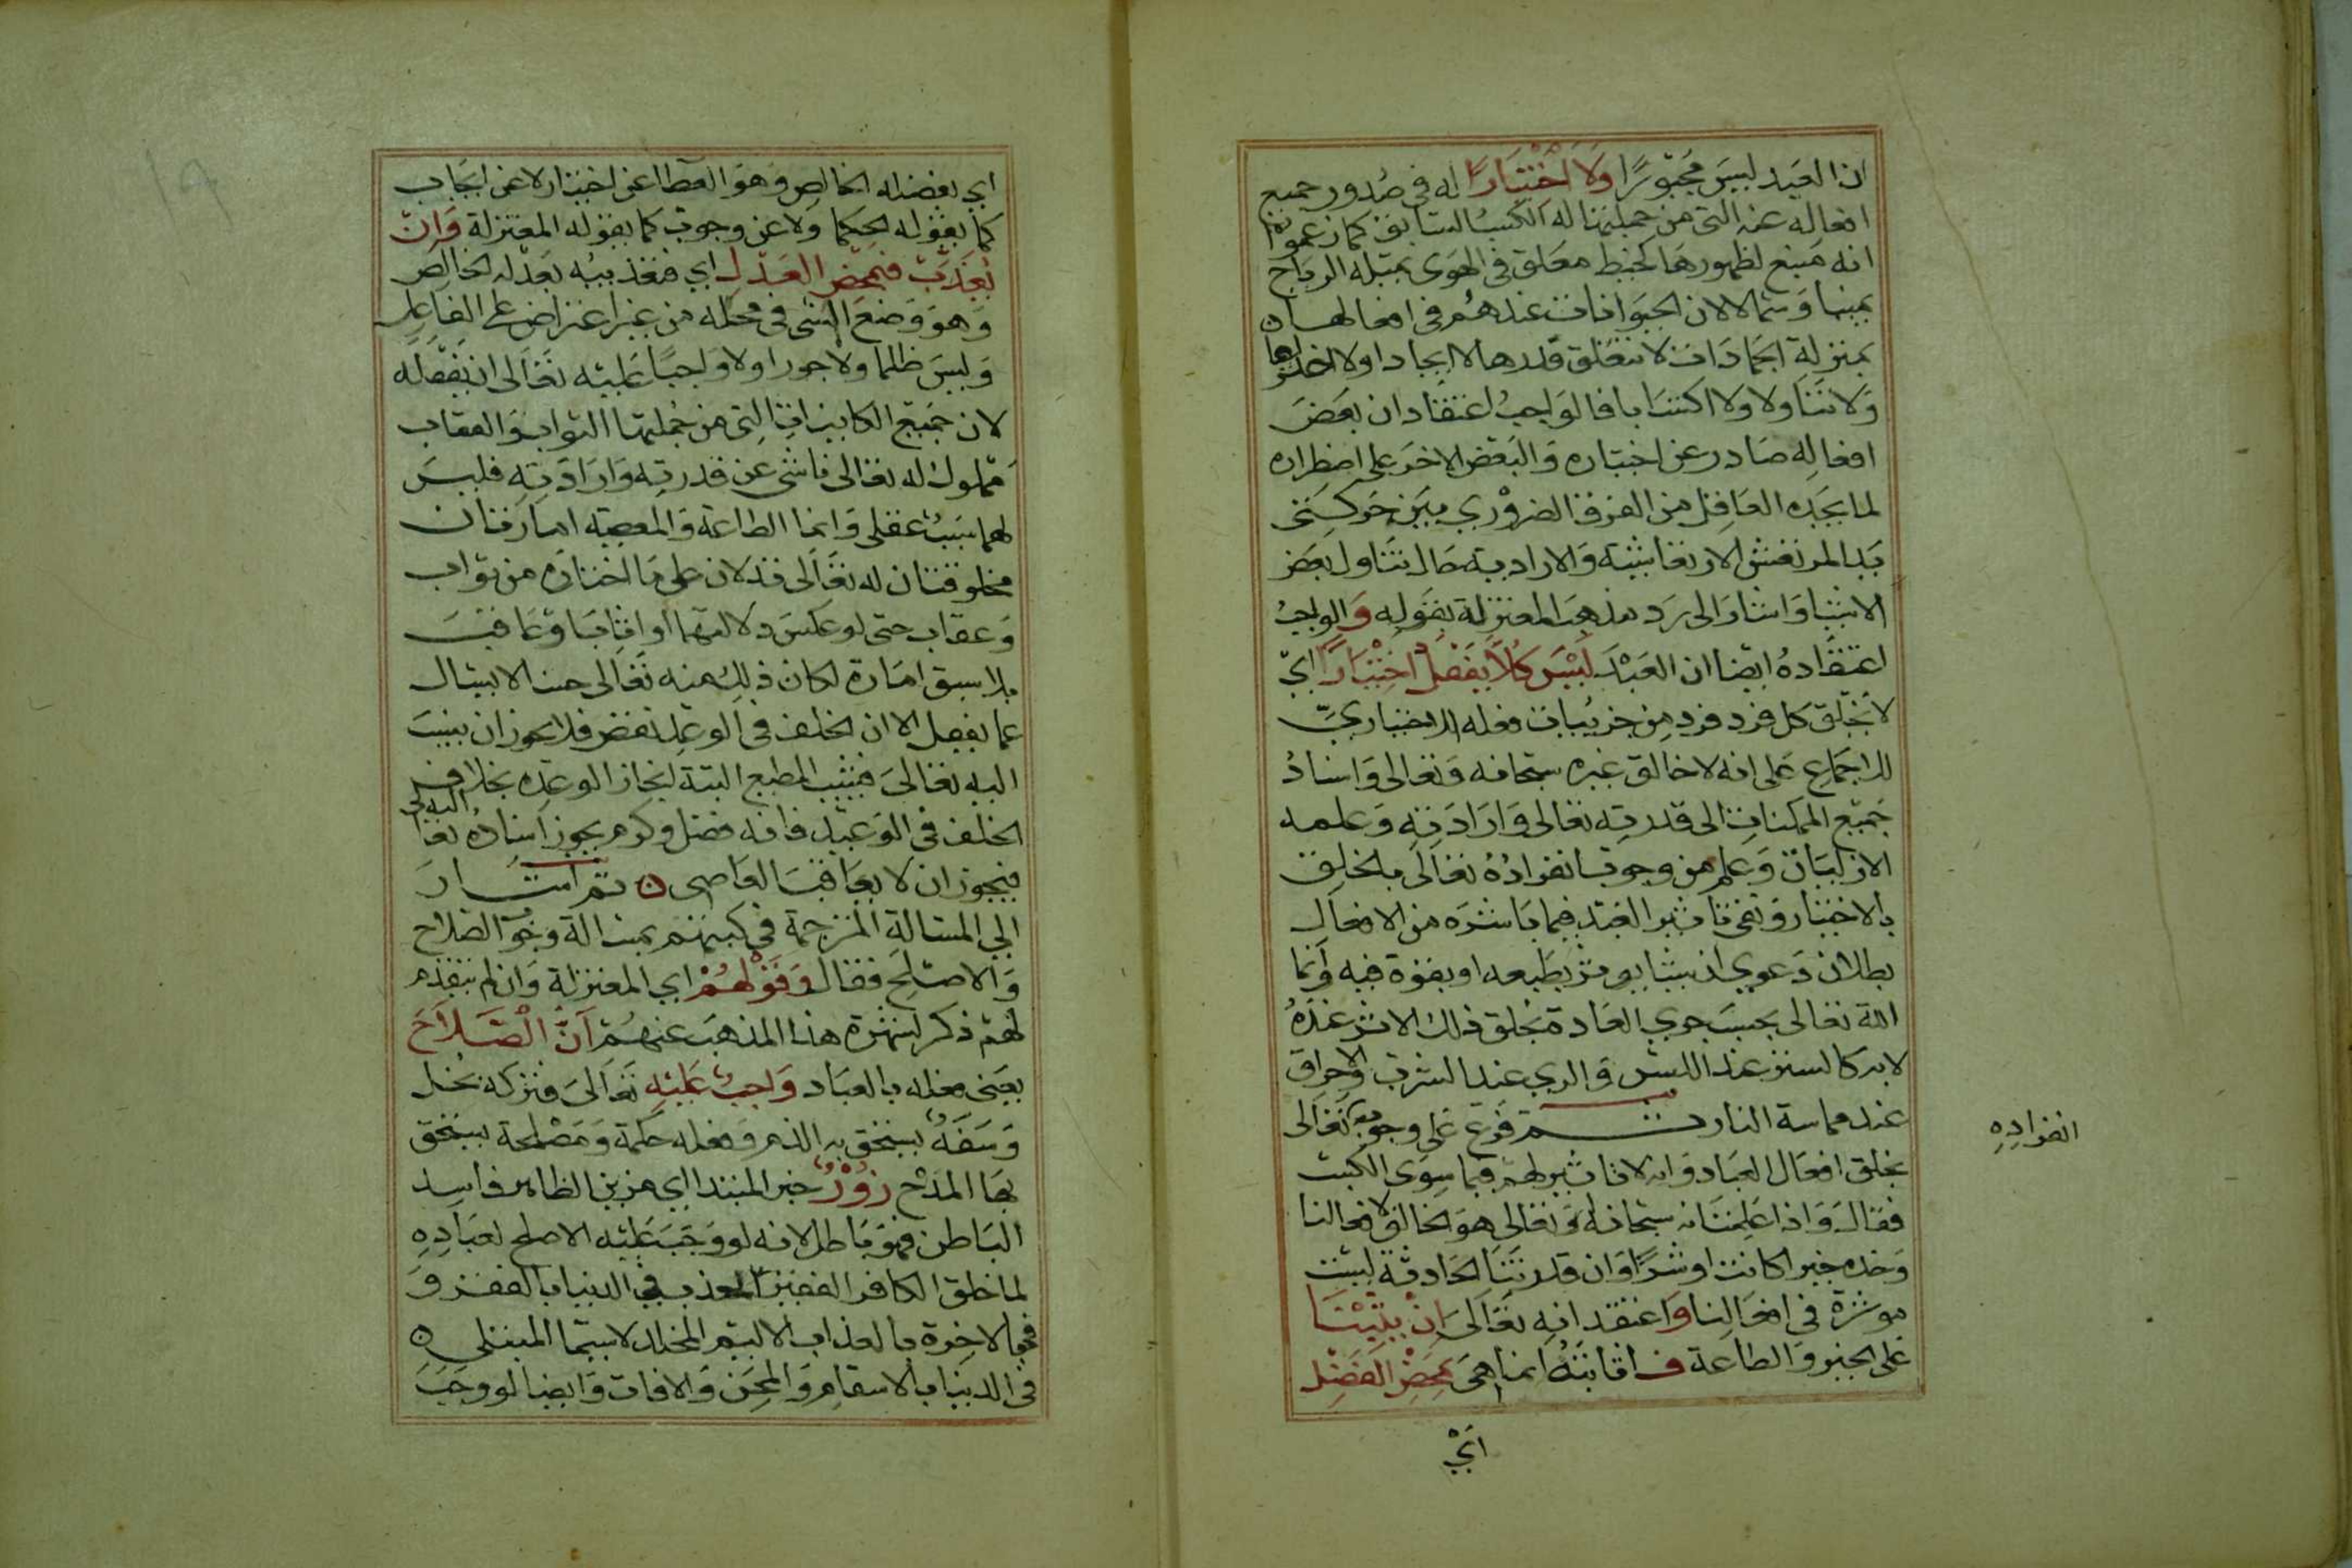 ان العبد ليس مجبورا ولا اختيارا له في صدور جميع
افعاله عنه التي من جملتها له الكسب السابق كما زعموا
انه منبع لظهورها كخيط معلق في الهوى تميله الرياح
يمينا وشمالا لان الحيوانات عندهم في افعالها
بمنزلة الجمادات لا تتعلق قدرها لا ايجادا ولا اختراعا
ولا تناولا ولا اكتسابا فالواجب اعتقاد ان بعض
افعاله صادر عن اختياره والبعض الاخر على اضطراره
لما يجده العاقل من الفرق الضروري بين حركتي
يد المرتعش الارتعاشية والارادية حال تناول بعض
الاشيا واشار الى رد مذهب المعتزلة بقوله والواجب
اعتقاده ايضا ان العبد ليس كلا يفعل اختيارا اي
لا يخلق كل فرد فرد من جزييات فعله الاختياري
للاجماع على انه لا خالق غيره سبحانه وتعالى واسناد
جميع الممكنات الى قدرته تعالى وارادته وعلمه
الازليات وعلم من وجوب انفراده تعالى بالخلق
بالاختيار ونفي تاثير العبد فيما باشره من الافعال
بطلان دعوي ان شيا يوثر بطبعه او بقوة فيه وانما
الله تعالى بحسب جري العادة يخلق ذلك الاثر عنده
لا به كالستر عند اللبس والري عند الشرب والاحراق
عند مماسة النار ثم فرع على وجوبه تعالى
انفراده
بخلق افعال العباد وانه لا تاثير لهم فيما سوى الكسب
فقال واذا علمت انه سبحانه وتعالى هو الخالق لافعالنا
وحده خيرا كانت او شرا وان قدرتنا الحادثة ليست
موثرة في افعالنا واعتقد انه تعالى ان يثبنا
على الخير والطاعة فاثابته انما هي بمحض الفضل
اي
اي بفضله الخالص وهو العطا عن اختيار لا عن ايجاب
كما يقوله الحكما ولا عن وجوب كما يقوله المعتزلة وان
يعذب فبمحض العدل اي فتعذيبه بعدله الخالص
وهو وضع الشى في محله من غير اعتراض على الفاعل
وليس ظلما ولا جورا ولا واجبا عليه تعالى ان يفعله
لان جميع الكاينات التي من جملتها الثواب والعقاب
مملوك له تعالى ناشى عن قدرته وارادته فليس
لهما سبب عقلي وانما الطاعة والمعصية امارتان
مخلوقتان له تعالى تدلان على ما اختاره من ثواب
وعقاب حتى لو عكس دلالتهما او اثاب وعاقب
بلا سبق امارة لكان ذلك منه تعالى حسنا لا يسال
عما يفعل الا ان الخلف في الوعد نقض فلا يجوز ان ينسب
اليه تعالى فيثيب المطيع البتة لنجاز الوعده بخلاف
الخلف في الوعيد فانه فضل وكرم يجوز اسناده اليه تعالى
فيجوز ان لا يعاقب العاصي ثم اشار
الي المسالة المترجمة في كتبهم بمسالة وجوب الصلاح
والاصلح فقال وقولهم اي المعتزلة وان لم يتقدم
لهم ذكر لشهرة هذا المذهب عنهم ان الصلاح
يعني فعله بالعباد واجب عليه تعالى فتركه بخل
وسفه يستحق به الذم وفعله حكمة ومصلحة يستحق
بها المدح زور خبر المبتدا اي مزين الظاهر فاسد
الباطن فهو باطل لانه لو وجب عليه الاصلح لعباده
لما خلق الكافر الفقير المعذب في الدنيا بالفقر و
في الاخرة بالعذاب الاليم المخلد لا سيما المبتلى
في الدنيا بالاسقام والمحن والافات وايضا لو وجب